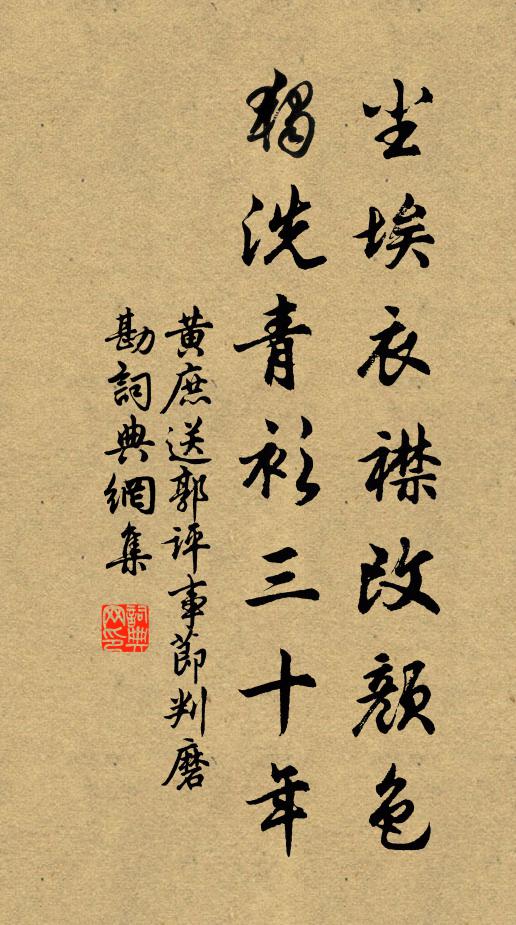 尘埃衣襟改颜色
独洗青衫三十年
黄庶送郭评事节判磨
勘词典网集
詞典
网印